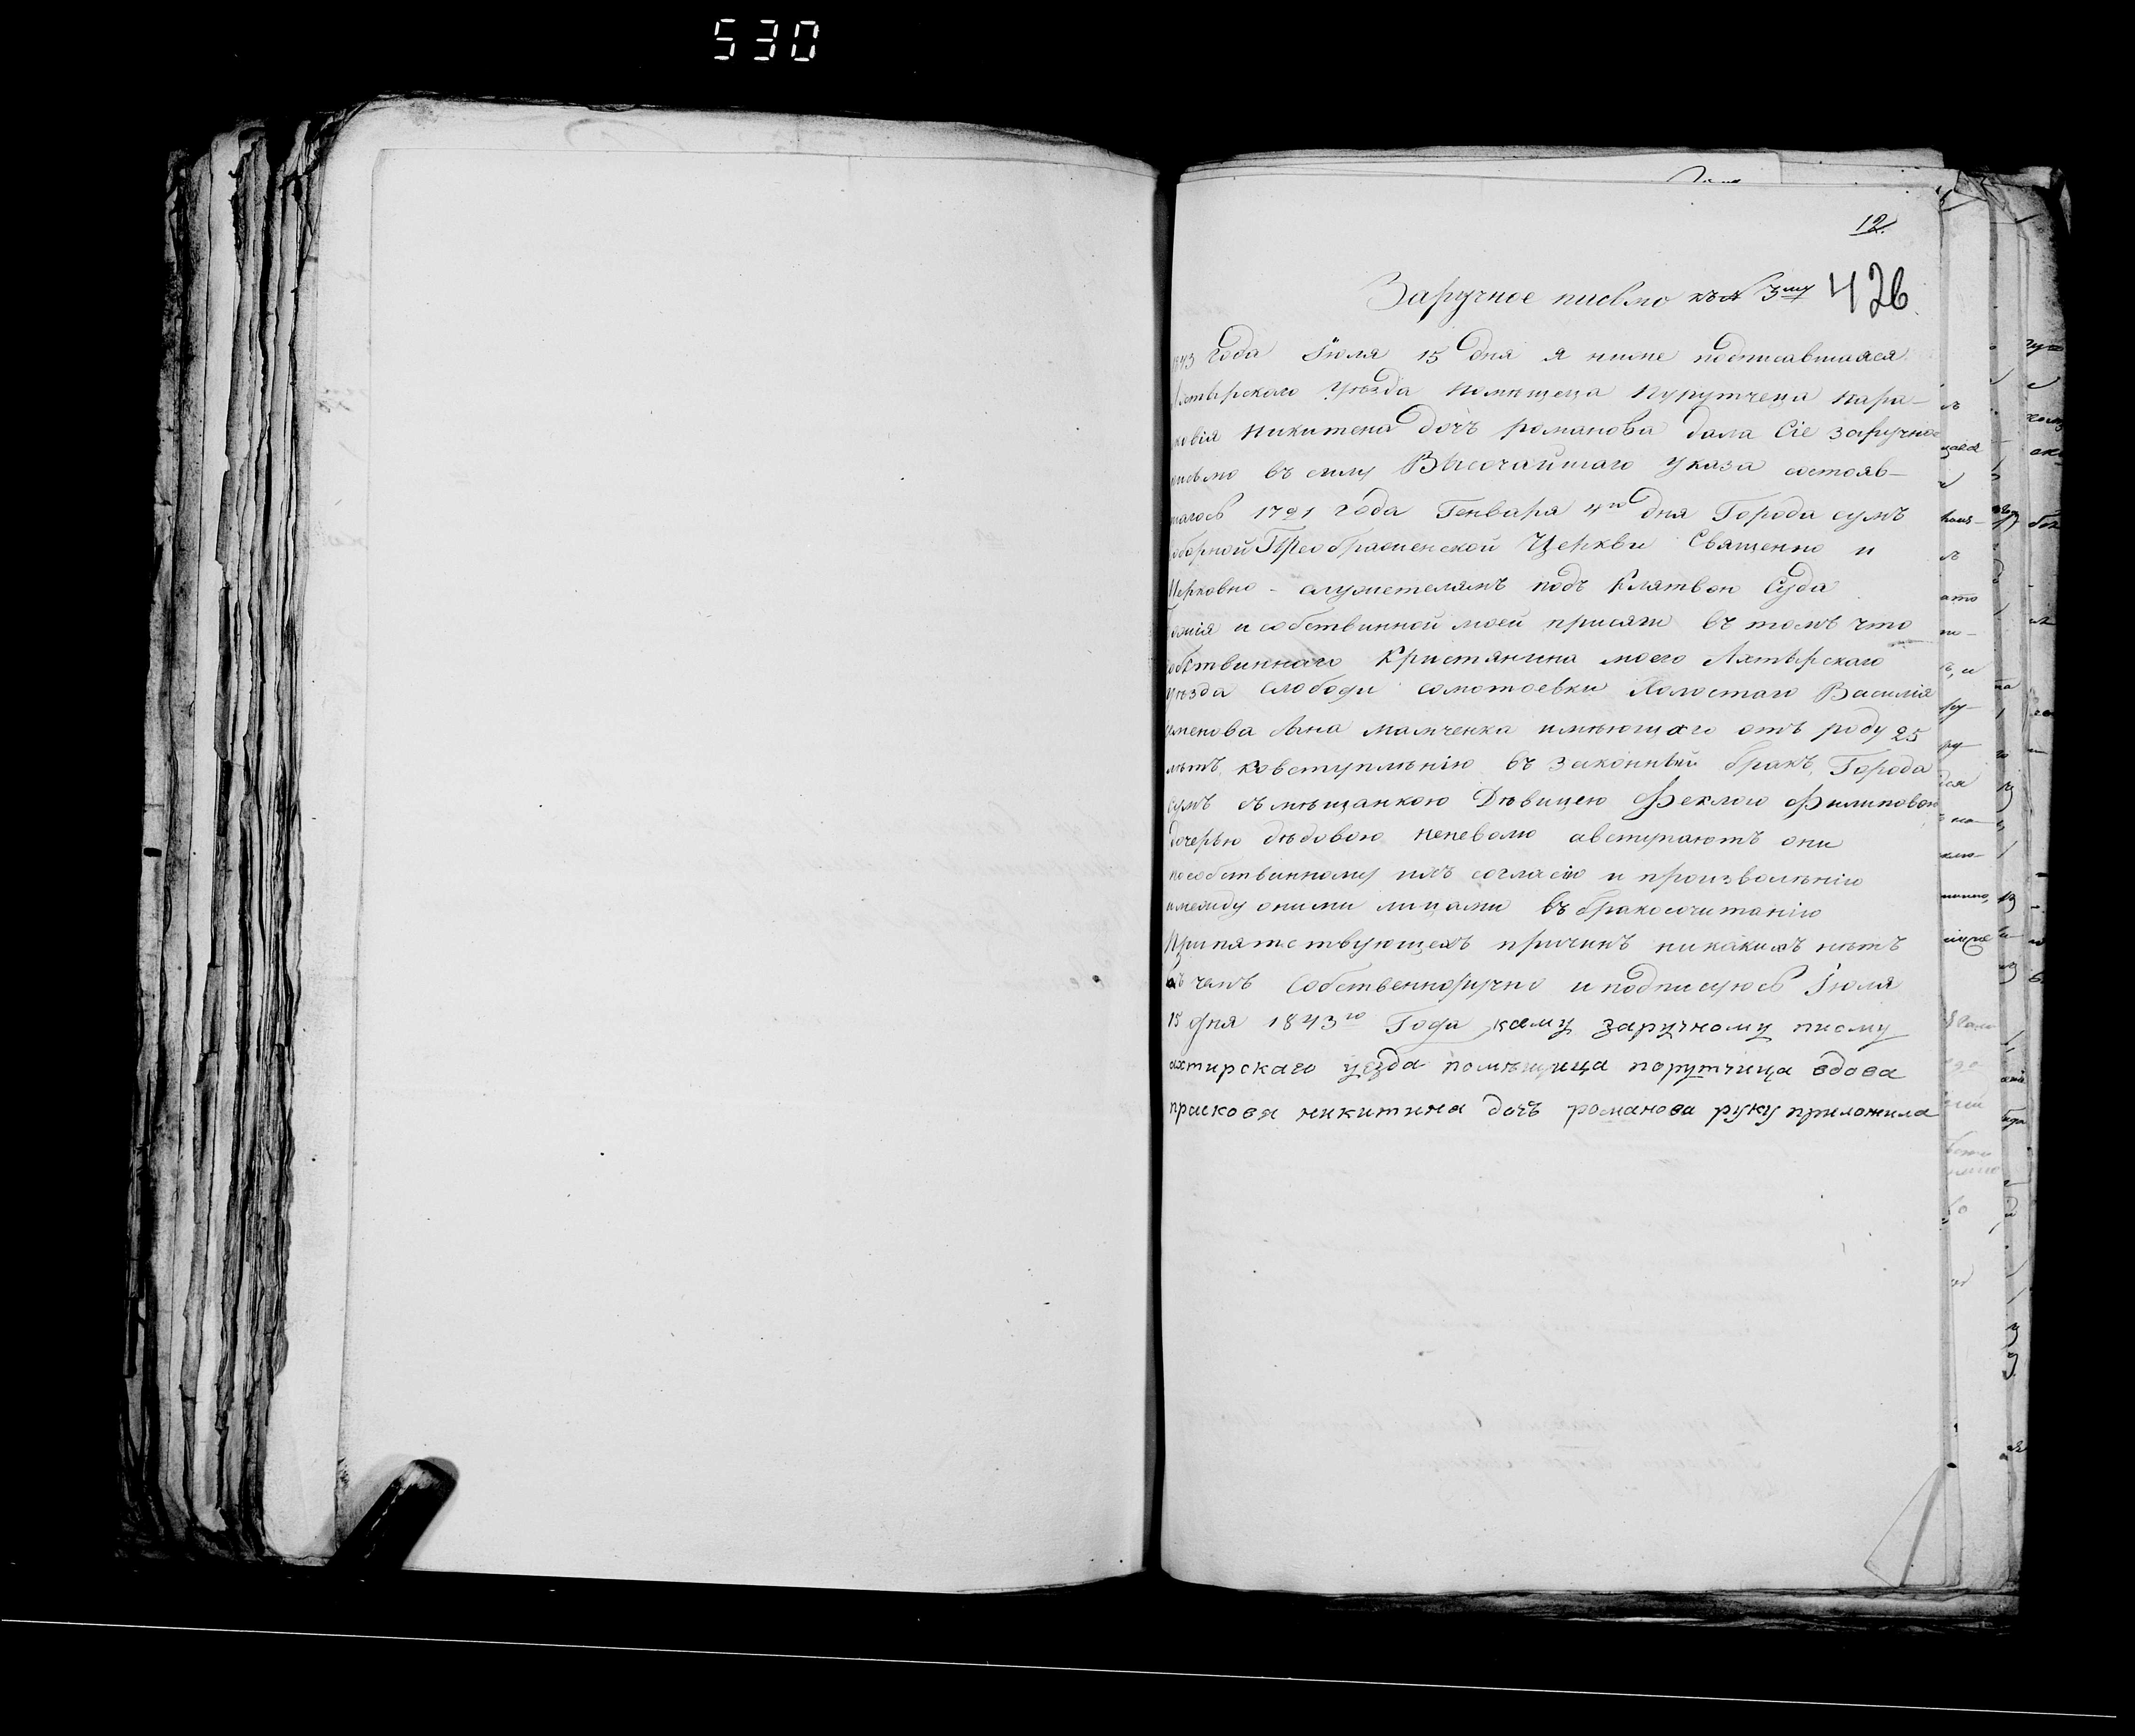 530
12.
Заручное письмо къ № 3му 426
1843 года Іюля 15 дня я ниже подписавшаяся
Ахтырскаго Уѣзда помѣщеца Пурутчеца Пара-
ковія Никитена дочъ романова дала Сіе заручное
письмо въ силу Высочайшаго указа состояв-
шагось 1721 года Генваря 4го дня Города сумъ
соборной Преображенской Церкви Священно и
Церковно - служетелямъ подъ Клятвою Суда
божія и собствинной моей присяги въ томъ что
собствиннаго Кристянина моего Ахтырскаго
уѣзда слободи Холостаго Василія
сына мамченка имѣющаго отъ роду 25
лѣтъ ковступлѣнію въ законный бракъ, Города
сумъ съ мѣщанкою Дѣвицею Феклою Филиповою
дочерью дѣдовою неневолю авступаютъ они
пособствинному ихъ согласію и произволѣнію
имежду оними лицами въ бракосочитанію
Припятствующехъ причинъ никакихъ нѣтъ
въ чемъ Собственноручно и подписуюсь Іюля
15 дня 1843го Года ксему заручному писму
ахтирскаго уезда помѣщица порутчица вдова
прасковя никитина дочъ романова руку приложила